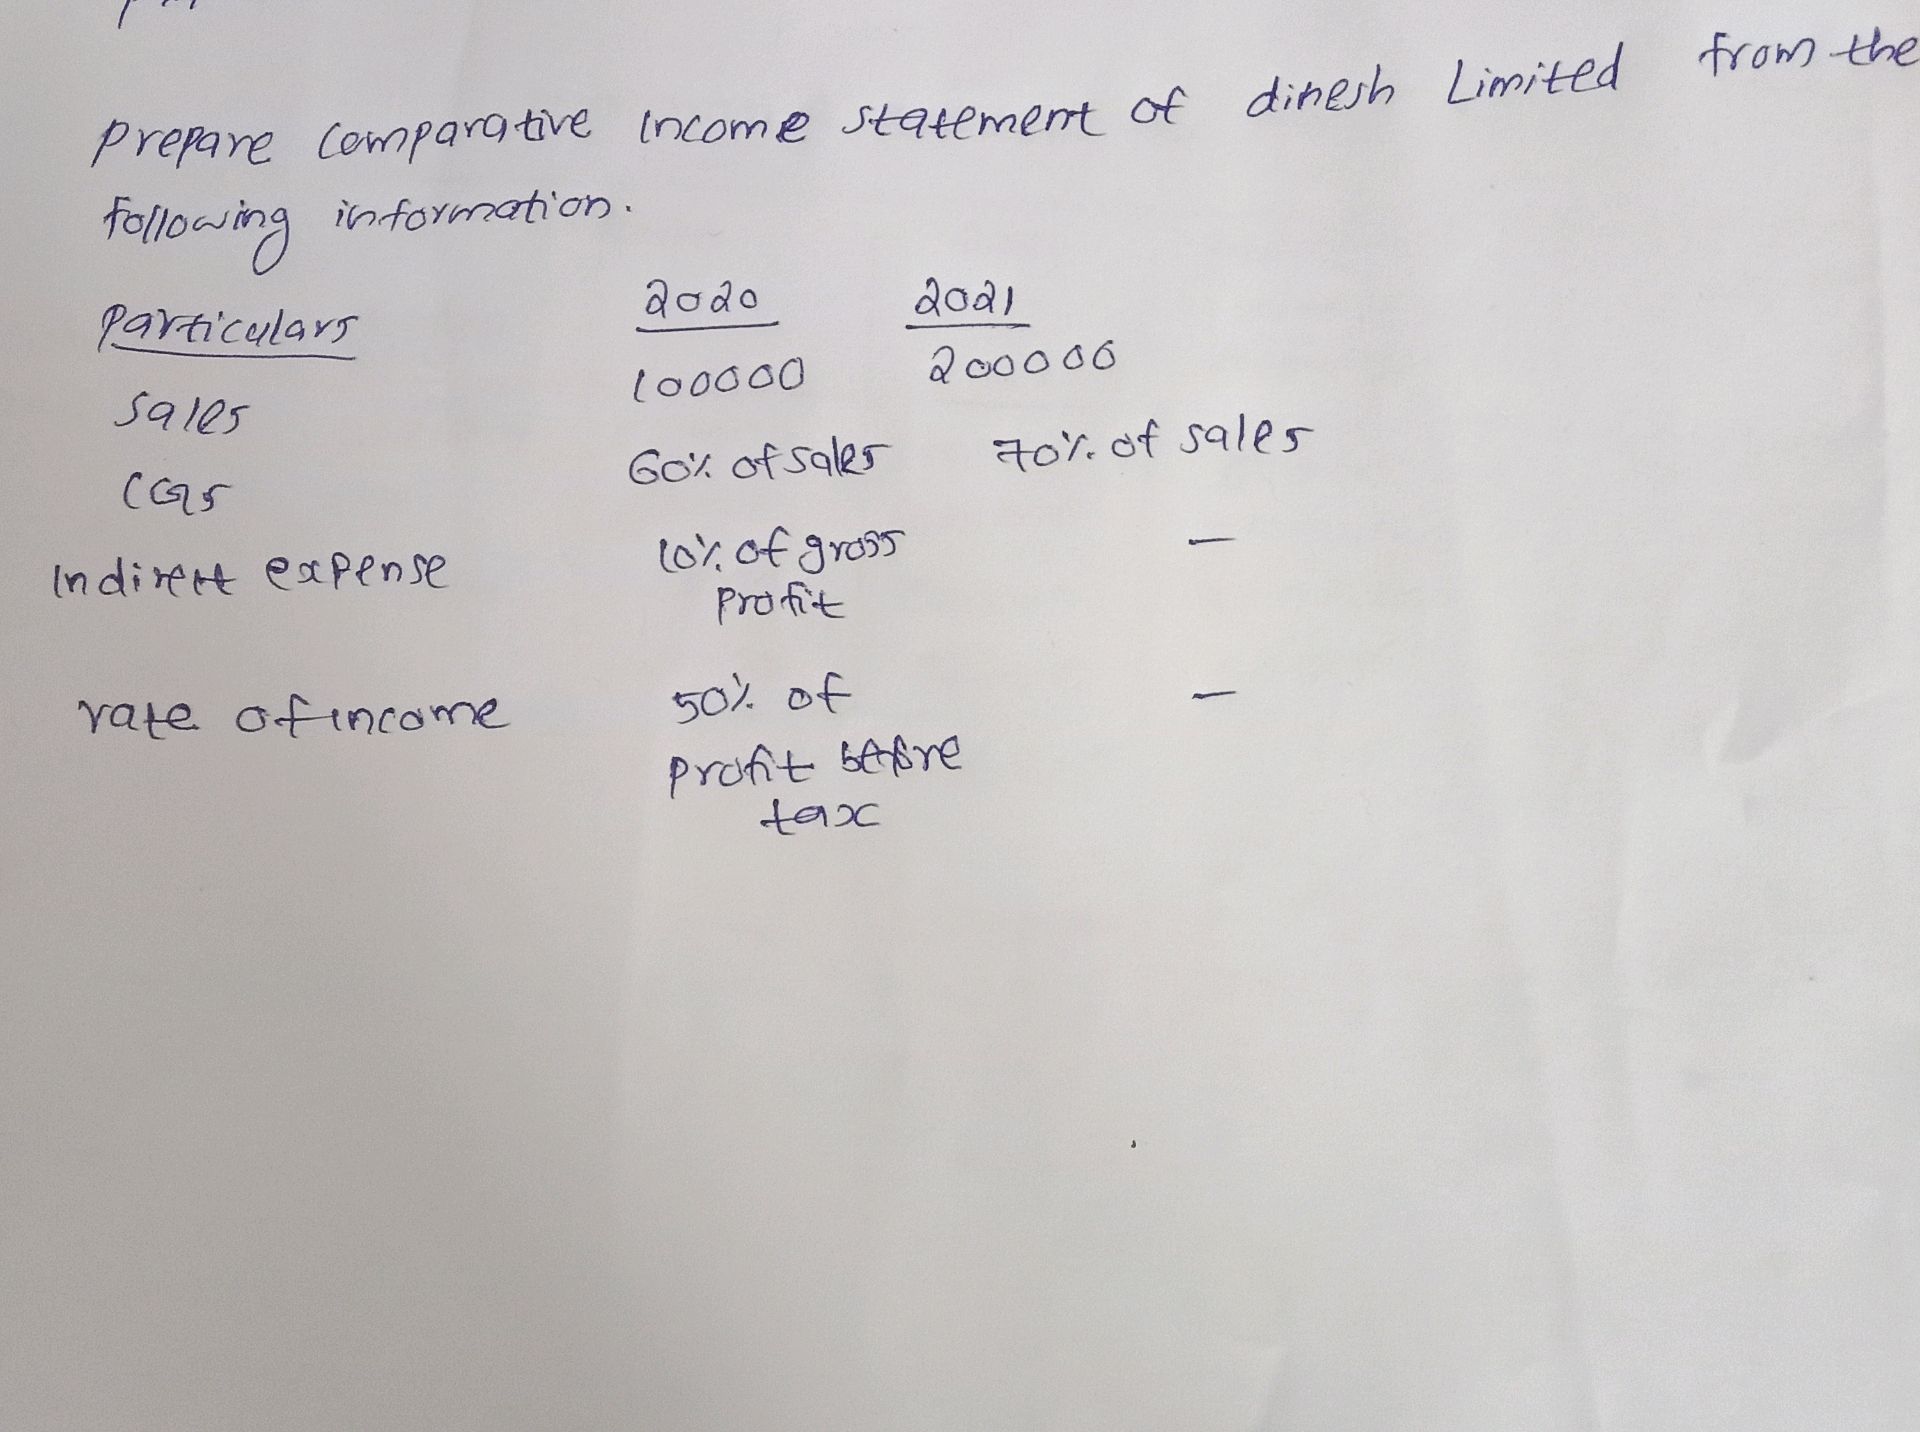 Prepare comparative income statement of dinesh Limited from the
following information.
Particulars 2020 2021
Sales 100000 200000
CGS 60% of sales 70% of sales
Indirect expense 10% of gross — 
Profit
rate of income 50% of —
profit before
tax